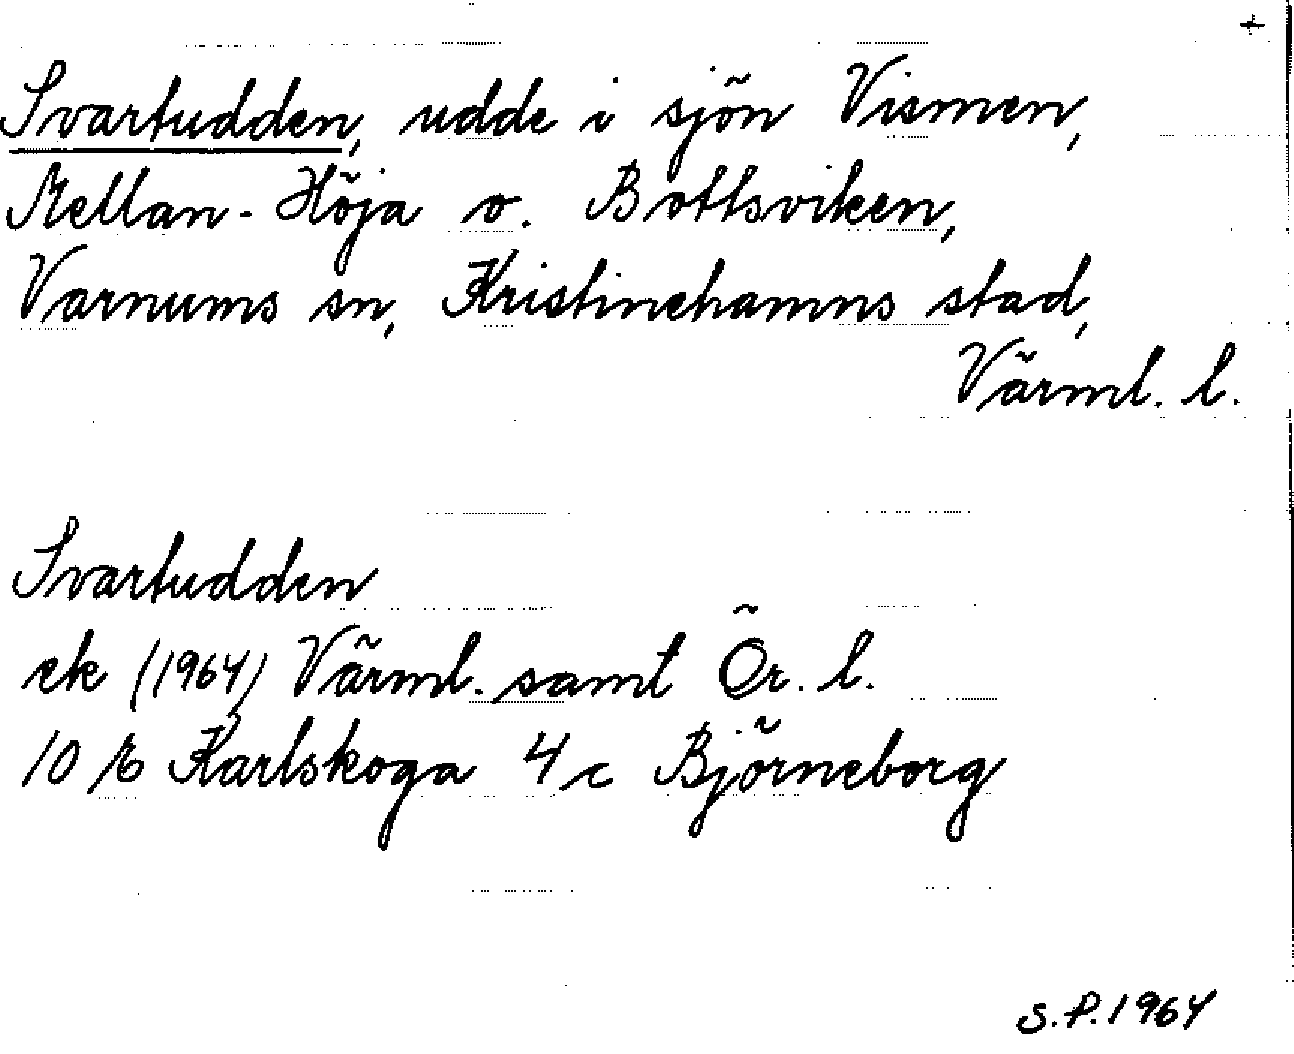 +
Svartudden, udde i sjön Vismen,
Mellan-Höja o. Bottsviken,
Varnums sn, Kristinehamns stad,
Värml. l.
Svartudden
ek (1964) Värml. samt Ör. l.
10 E Karlskoga 4 c Björneborg
S.P. 1964